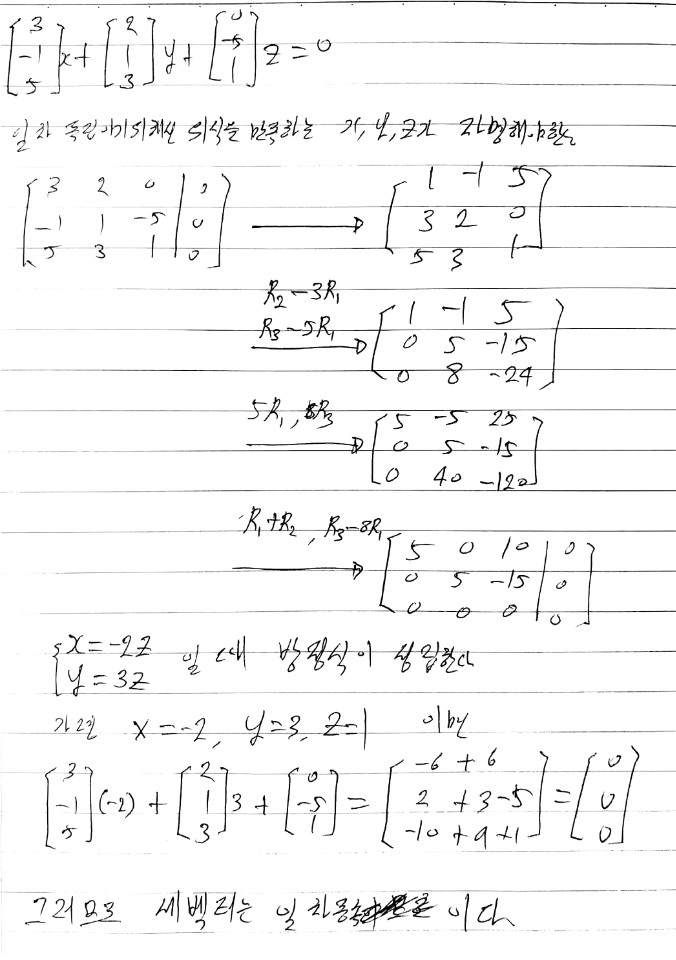 [3 -1 5]x + [2 1 3]y + [0 -5 1]z = 0
일차 독립이기 위해선 위식을 만족하는 x, y, z가 자명해야한다
[3 2 0 | 0
-1 1 -5 | 0
5 3 1 | 0] → [1 -1 5
3 2 0
5 3 1]
R₂-3R₁
R₃-5R₁ → [1 -1 5
0 5 -15
0 8 -24]
5R₁, 5R₃ → [5 -5 25
0 5 -15
0 40 -120]
R₁+R₂, R₃-8R₁ → [5 0 10 | 0
0 5 -15 | 0
0 0 0 | 0]
{x = -2z
y = 3z 일 때 방정식이 성립한다
가령 x = -2, y = 3, z = 1 이번
[3 -1 5](-2) + [2 1 3]3 + [0 -5 1] = [-6 + 6
2 + 3 - 5
-10 + 9 + 1] = [0 0 0]
그러므로 세 벡터는 일차종속이다